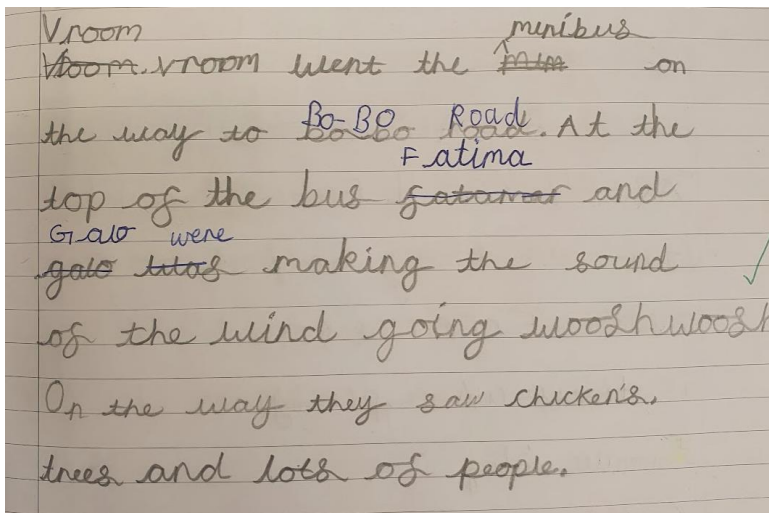 Vroom minibus
Vroom. vroom went the mim on
the way to Bo-Bo Road. At the
Fatima
top of the bus fatamar and
Galo were
galo was making the sound
of the wind going woosh woosh
On the way they saw chicken's,
trees and lots of people.